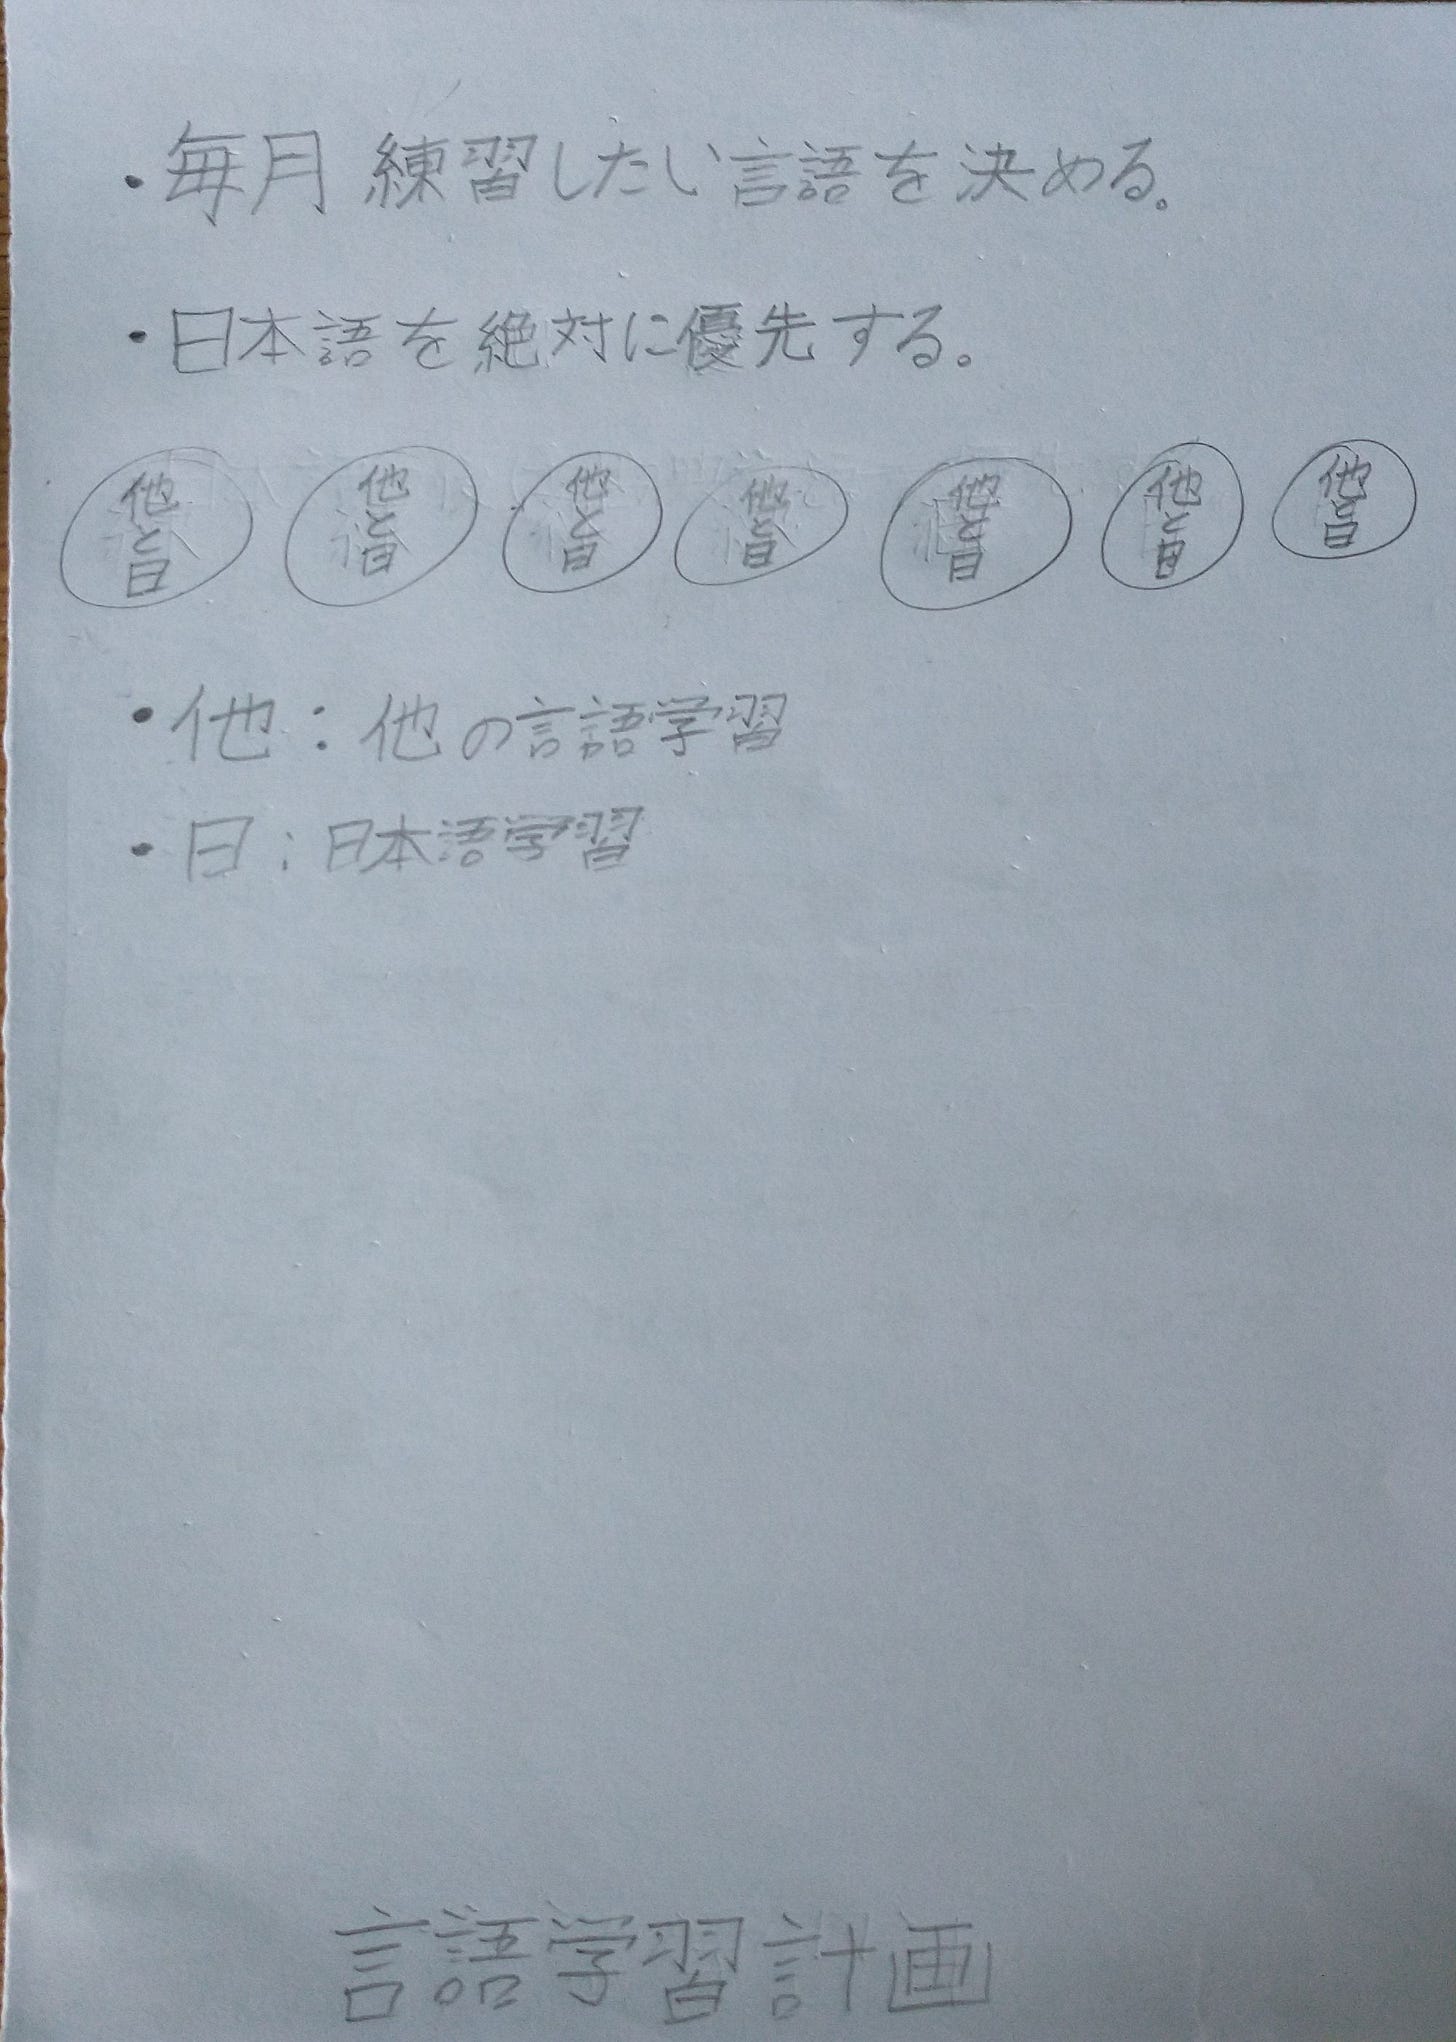 ・毎月 練習したい言語を決める。
・日本語を絶対に優先する。
他と日 他と日 他と日 他と日 他と日 他と日 他と日
・他：他の言語学習
・日：日本語学習
言語学習計画